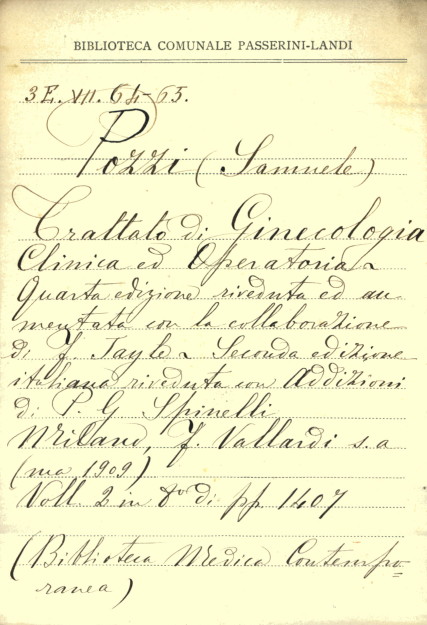 BIBLIOTECA COMUNALE PASSERINI-LANDI
3E. VII. 64-65.
Pozzi (Samuele)
Trattato di Ginecologia
Clinica ed Operatoria
Quarta edizione riveduta ed au-
mentata con la collaborazione
di F. Jayle - Seconda edizione
italiana riveduta con Addizioni
di P. G Spinelli
Milano, F. Vallardi s. a
(ma 1909)
Voll. 2 in 8° di pp. 1407
(Biblioteca Medica Contempo=
ranea)